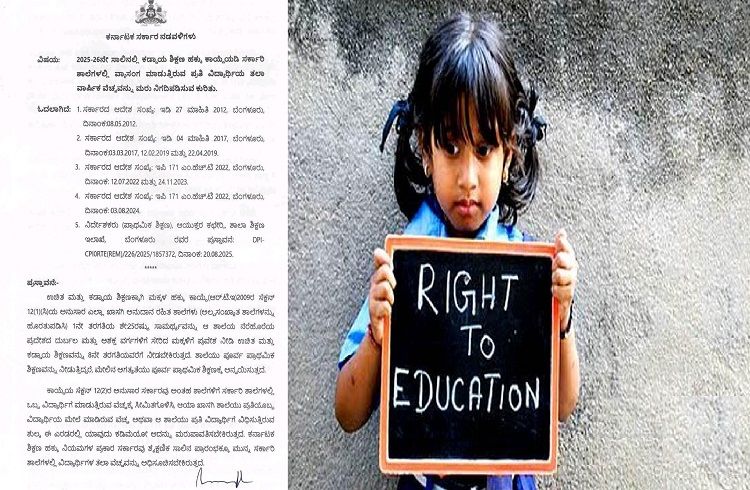 ಕರ್ನಾಟಕ ಸರ್ಕಾರ ನಡವಳಿಗಳು
ವಿಷಯ: 2025-26ನೇ ಸಾಲಿನಲ್ಲಿ ಕಡ್ಡಾಯ ಶಿಕ್ಷಣ ಹಕ್ಕು ಕಾಯ್ದೆಯಡಿ ಸರ್ಕಾರಿ
ಶಾಲೆಗಳಲ್ಲಿ ವ್ಯಾಸಂಗ ಮಾಡುತ್ತಿರುವ ಪ್ರತಿ ವಿದ್ಯಾರ್ಥಿಯ ತಲಾ
ವಾರ್ಷಿಕ ವೆಚ್ಚವನ್ನು ಮರು ನಿಗದಿಪಡಿಸುವ ಕುರಿತು.
ಓದಲಾಗಿದೆ: 1. ಸರ್ಕಾರದ ಆದೇಶ ಸಂಖ್ಯೆ: ಇಡಿ 27 ಮಾಹಿತಿ 2012, ಬೆಂಗಳೂರು,
ದಿನಾಂಕ:08.05.2012.
2. ಸರ್ಕಾರದ ಆದೇಶ ಸಂಖ್ಯೆ: ಇಡಿ 04 ಮಾಹಿತಿ 2017, ಬೆಂಗಳೂರು,
ದಿನಾಂಕ:03.03.2017, 12.02.2019 ಮತ್ತು 22.04.2019.
3. ಸರ್ಕಾರದ ಆದೇಶ ಸಂಖ್ಯೆ: ಇಪಿ 171 ಎಂ.ಹೆಚ್.ಟಿ 2022, ಬೆಂಗಳೂರು,
ದಿನಾಂಕ: 12.07.2022 ಮತ್ತು 24.11.2023.
4. ಸರ್ಕಾರದ ಆದೇಶ ಸಂಖ್ಯೆ: ಇಪಿ 171 ಎಂ.ಹೆಚ್.ಟಿ 2022, ಬೆಂಗಳೂರು,
ದಿನಾಂಕ: 03.08.2024.
5. ನಿರ್ದೇಶಕರು (ಪ್ರಾಥಮಿಕ ಶಿಕ್ಷಣ), ಆಯುಕ್ತರ ಕಛೇರಿ, ಶಾಲಾ ಶಿಕ್ಷಣ
ಇಲಾಖೆ, ಬೆಂಗಳೂರು ರವರ ಪ್ರಸ್ತಾವನೆ: DPI-
CPI0RTE(REM)/226/2025/1857372, ದಿನಾಂಕ: 20.08.2025.
*****
ಪ್ರಸ್ತಾವನೆ:
ಉಚಿತ ಮತ್ತು ಕಡ್ಡಾಯ ಶಿಕ್ಷಣಕ್ಕಾಗಿ ಮಕ್ಕಳ ಹಕ್ಕು ಕಾಯ್ದೆ(ಆರ್.ಟಿ.ಇ)2009ರ ಸೆಕ್ಷನ್
12(1)(ಸಿ)ಯ ಅನುಸಾರ ಎಲ್ಲಾ ಖಾಸಗಿ ಅನುದಾನ ರಹಿತ ಶಾಲೆಗಳು (ಅಲ್ಪಸಂಖ್ಯಾತ ಶಾಲೆಗಳನ್ನು
ಹೊರತುಪಡಿಸಿ) 1ನೇ ತರಗತಿಯ ಶೇ25ರಷ್ಟು ಸಾಮರ್ಥ್ಯವನ್ನು ಆ ಶಾಲೆಯ ನೆರೆಹೊರೆಯ
ಪ್ರದೇಶದ ದುರ್ಬಲ ಮತ್ತು ಅಶಕ್ತ ವರ್ಗಗಳಿಗೆ ಸೇರಿದ ಮಕ್ಕಳಿಗೆ ಪ್ರವೇಶ ನೀಡಿ ಉಚಿತ ಮತ್ತು
ಕಡ್ಡಾಯ ಶಿಕ್ಷಣವನ್ನು 8ನೇ ತರಗತಿಯವರೆಗೆ ನೀಡಬೇಕಿರುತ್ತದೆ. ಶಾಲೆಯು ಪೂರ್ವ ಪ್ರಾಥಮಿಕ
ಶಿಕ್ಷಣವನ್ನು ನೀಡುತ್ತಿದ್ದರೆ, ಮೇಲಿನ ಅಗತ್ಯತೆಯು ಪೂರ್ವ ಪ್ರಾಥಮಿಕ ಶಿಕ್ಷಣಕ್ಕೆ ಅನ್ವಯಿಸುತ್ತದೆ.
ಕಾಯ್ದೆಯ ಸೆಕ್ಷನ್ 12(2)ರ ಅನುಸಾರ ಸರ್ಕಾರವು ಅಂತಹ ಶಾಲೆಗಳಿಗೆ ಸರ್ಕಾರಿ ಶಾಲೆಗಳಲ್ಲಿ
ಒಬ್ಬ ವಿದ್ಯಾರ್ಥಿಗೆ ಮಾಡುತ್ತಿರುವ ವೆಚ್ಚಕ್ಕೆ ಸೀಮಿತಗೊಳಿಸಿ, ಆಯಾ ಖಾಸಗಿ ಶಾಲೆಯು ಪ್ರತಿಯೊಬ್ಬ
ವಿದ್ಯಾರ್ಥಿಯ ಮೇಲೆ ಮಾಡಿರುವ ವೆಚ್ಚ ಅಥವಾ ಆ ಶಾಲೆಯು ಪ್ರತಿ ವಿದ್ಯಾರ್ಥಿಗೆ ವಿಧಿಸುತ್ತಿರುವ
ಶುಲ್ಕ, ಈ ಎರಡರಲ್ಲಿ ಯಾವುದು ಕಡಿಮೆಯೋ ಅದನ್ನು ಮರುಪಾವತಿಸಬೇಕಿರುತ್ತದೆ. ಕರ್ನಾಟಕ
ಶಿಕ್ಷಣ ಹಕ್ಕು ನಿಯಮಗಳ ಪ್ರಕಾರ ಸರ್ಕಾರವು ಶೈಕ್ಷಣಿಕ ಸಾಲಿನ ಪ್ರಾರಂಭಕ್ಕೂ ಮುನ್ನ ಸರ್ಕಾರಿ
ಶಾಲೆಗಳಲ್ಲಿ ವಿದ್ಯಾರ್ಥಿಗಳ ತಲಾ ವೆಚ್ಚವನ್ನು ಅಧಿಸೂಚಿಸಬೇಕಿರುತ್ತದೆ.
RIGHT
TO
EDUCATION